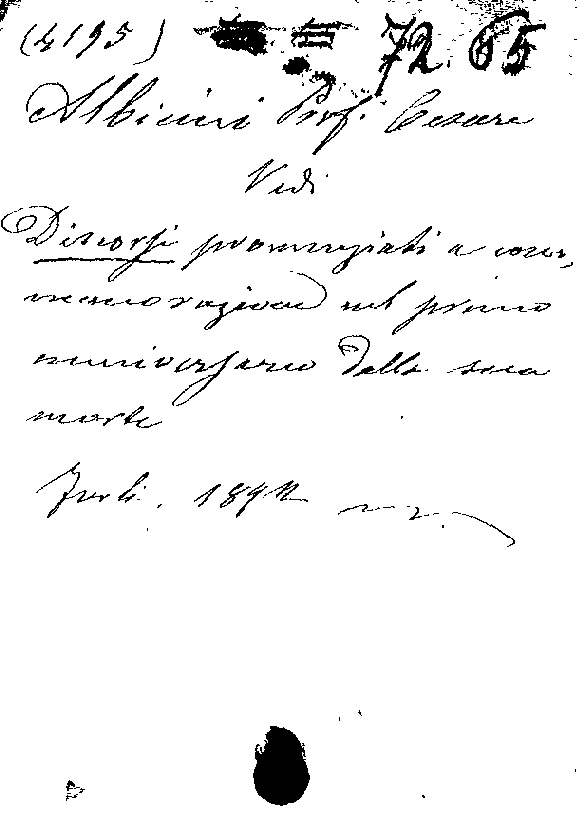 (4195) 72. 65
Albicini Prof. Cesare
Vedi
Discorsi pronunziati a com,
memorazione nel primo
anniversario della sua
morte
Forlì. 1892